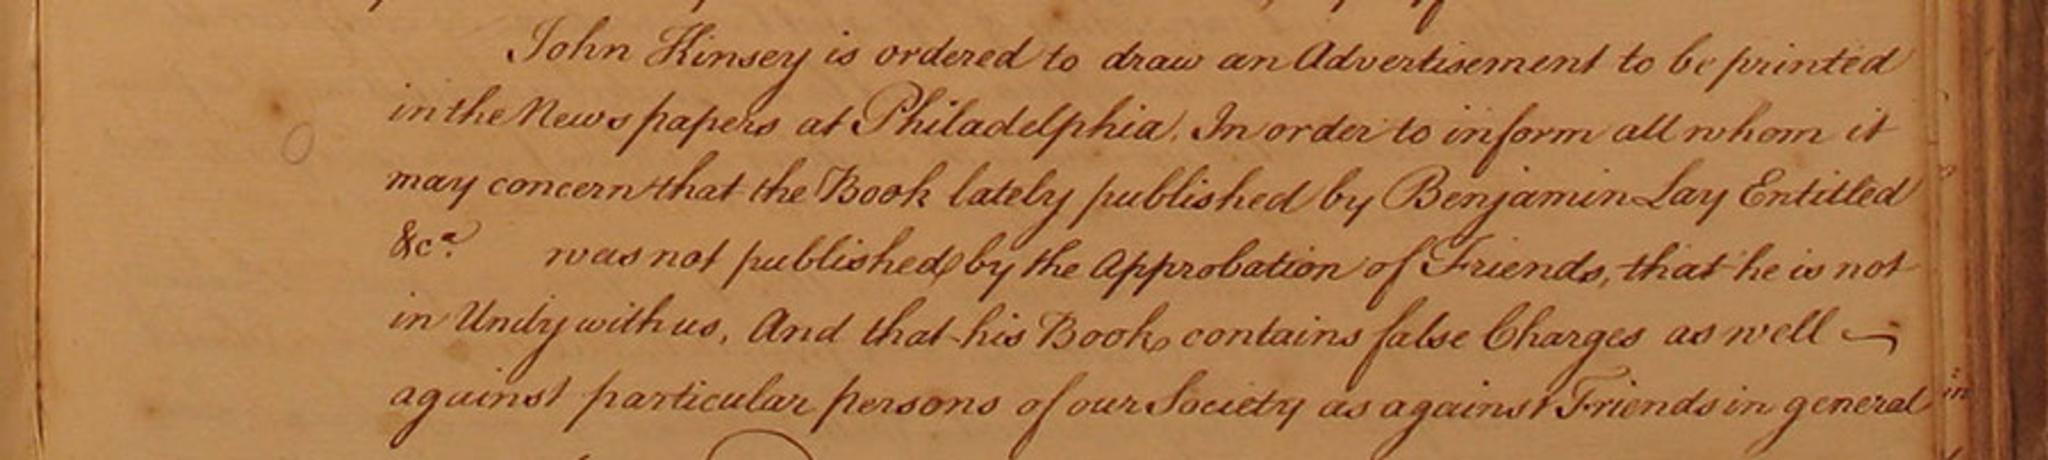 John Kinsey is ordered to draw an Advertisement to be printed
in the News papers at Philadelphia. In order to inform all whom it
may concern that the Book lately published by Benjamin Lay Entitled
&c.a was not published by the Approbation of Friends, that he is not
in Unity with us, And that his Book contains false Charges as well
against particular persons of our Society as against Friends in general
in